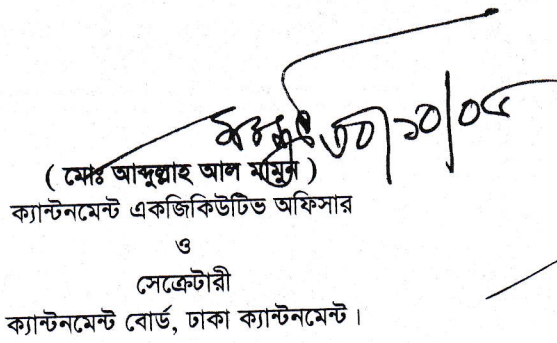 ৩০/১০/০৫
( মোঃ আব্দুল্লাহ আল মামুন )
ক্যান্টনমেন্ট একজিকিউটিভ অফিসার
ও
সেক্রেটারী
ক্যান্টনমেন্ট বোর্ড, ঢাকা ক্যান্টনমেন্ট।